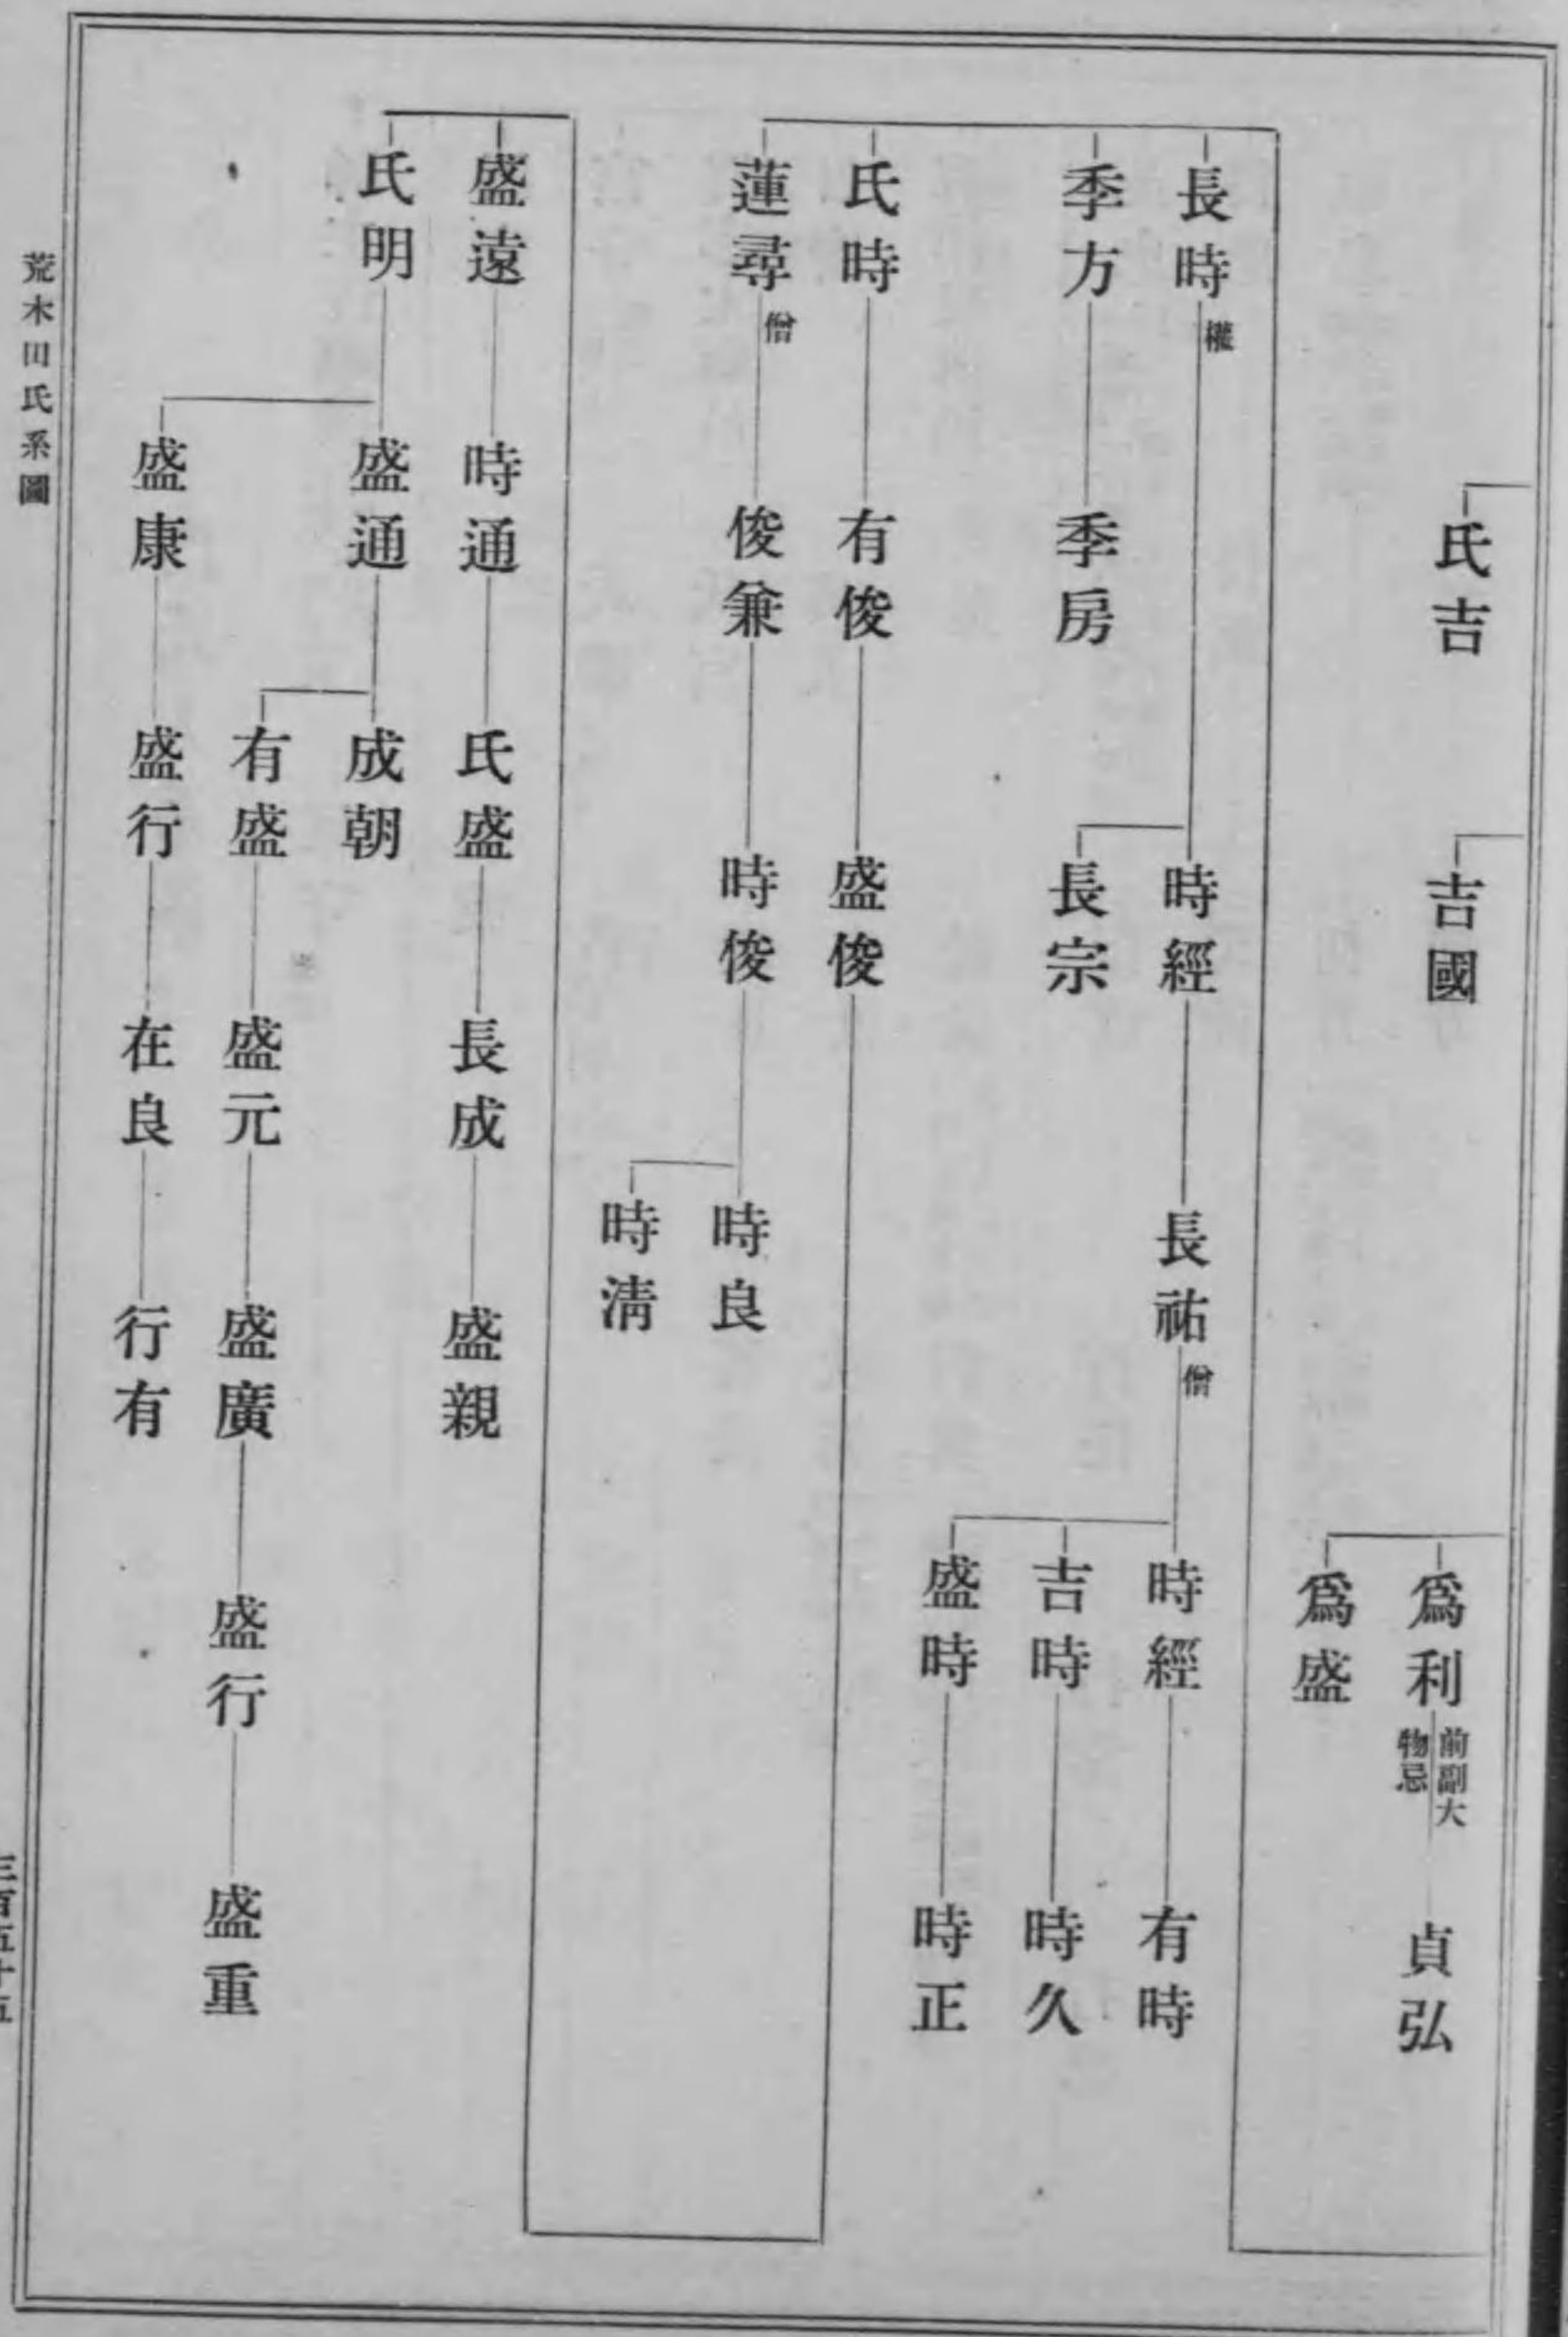 氏吉
吉國
爲利 前副大物忌
貞弘
爲盛
長時 權
時經
長祐 僧
時經
有時
吉時
時久
盛時
時正
長宗
季方
季房
氏時
有俊
盛俊
蓮尋 僧
俊兼
時俊
時良
時淸
盛遠
時通
氏盛
長成
盛親
氏明
盛通
成朝
有盛
盛元
盛廣
盛行
盛重
盛康
盛行
在良
行有
荒木田氏系圖
三百五十五